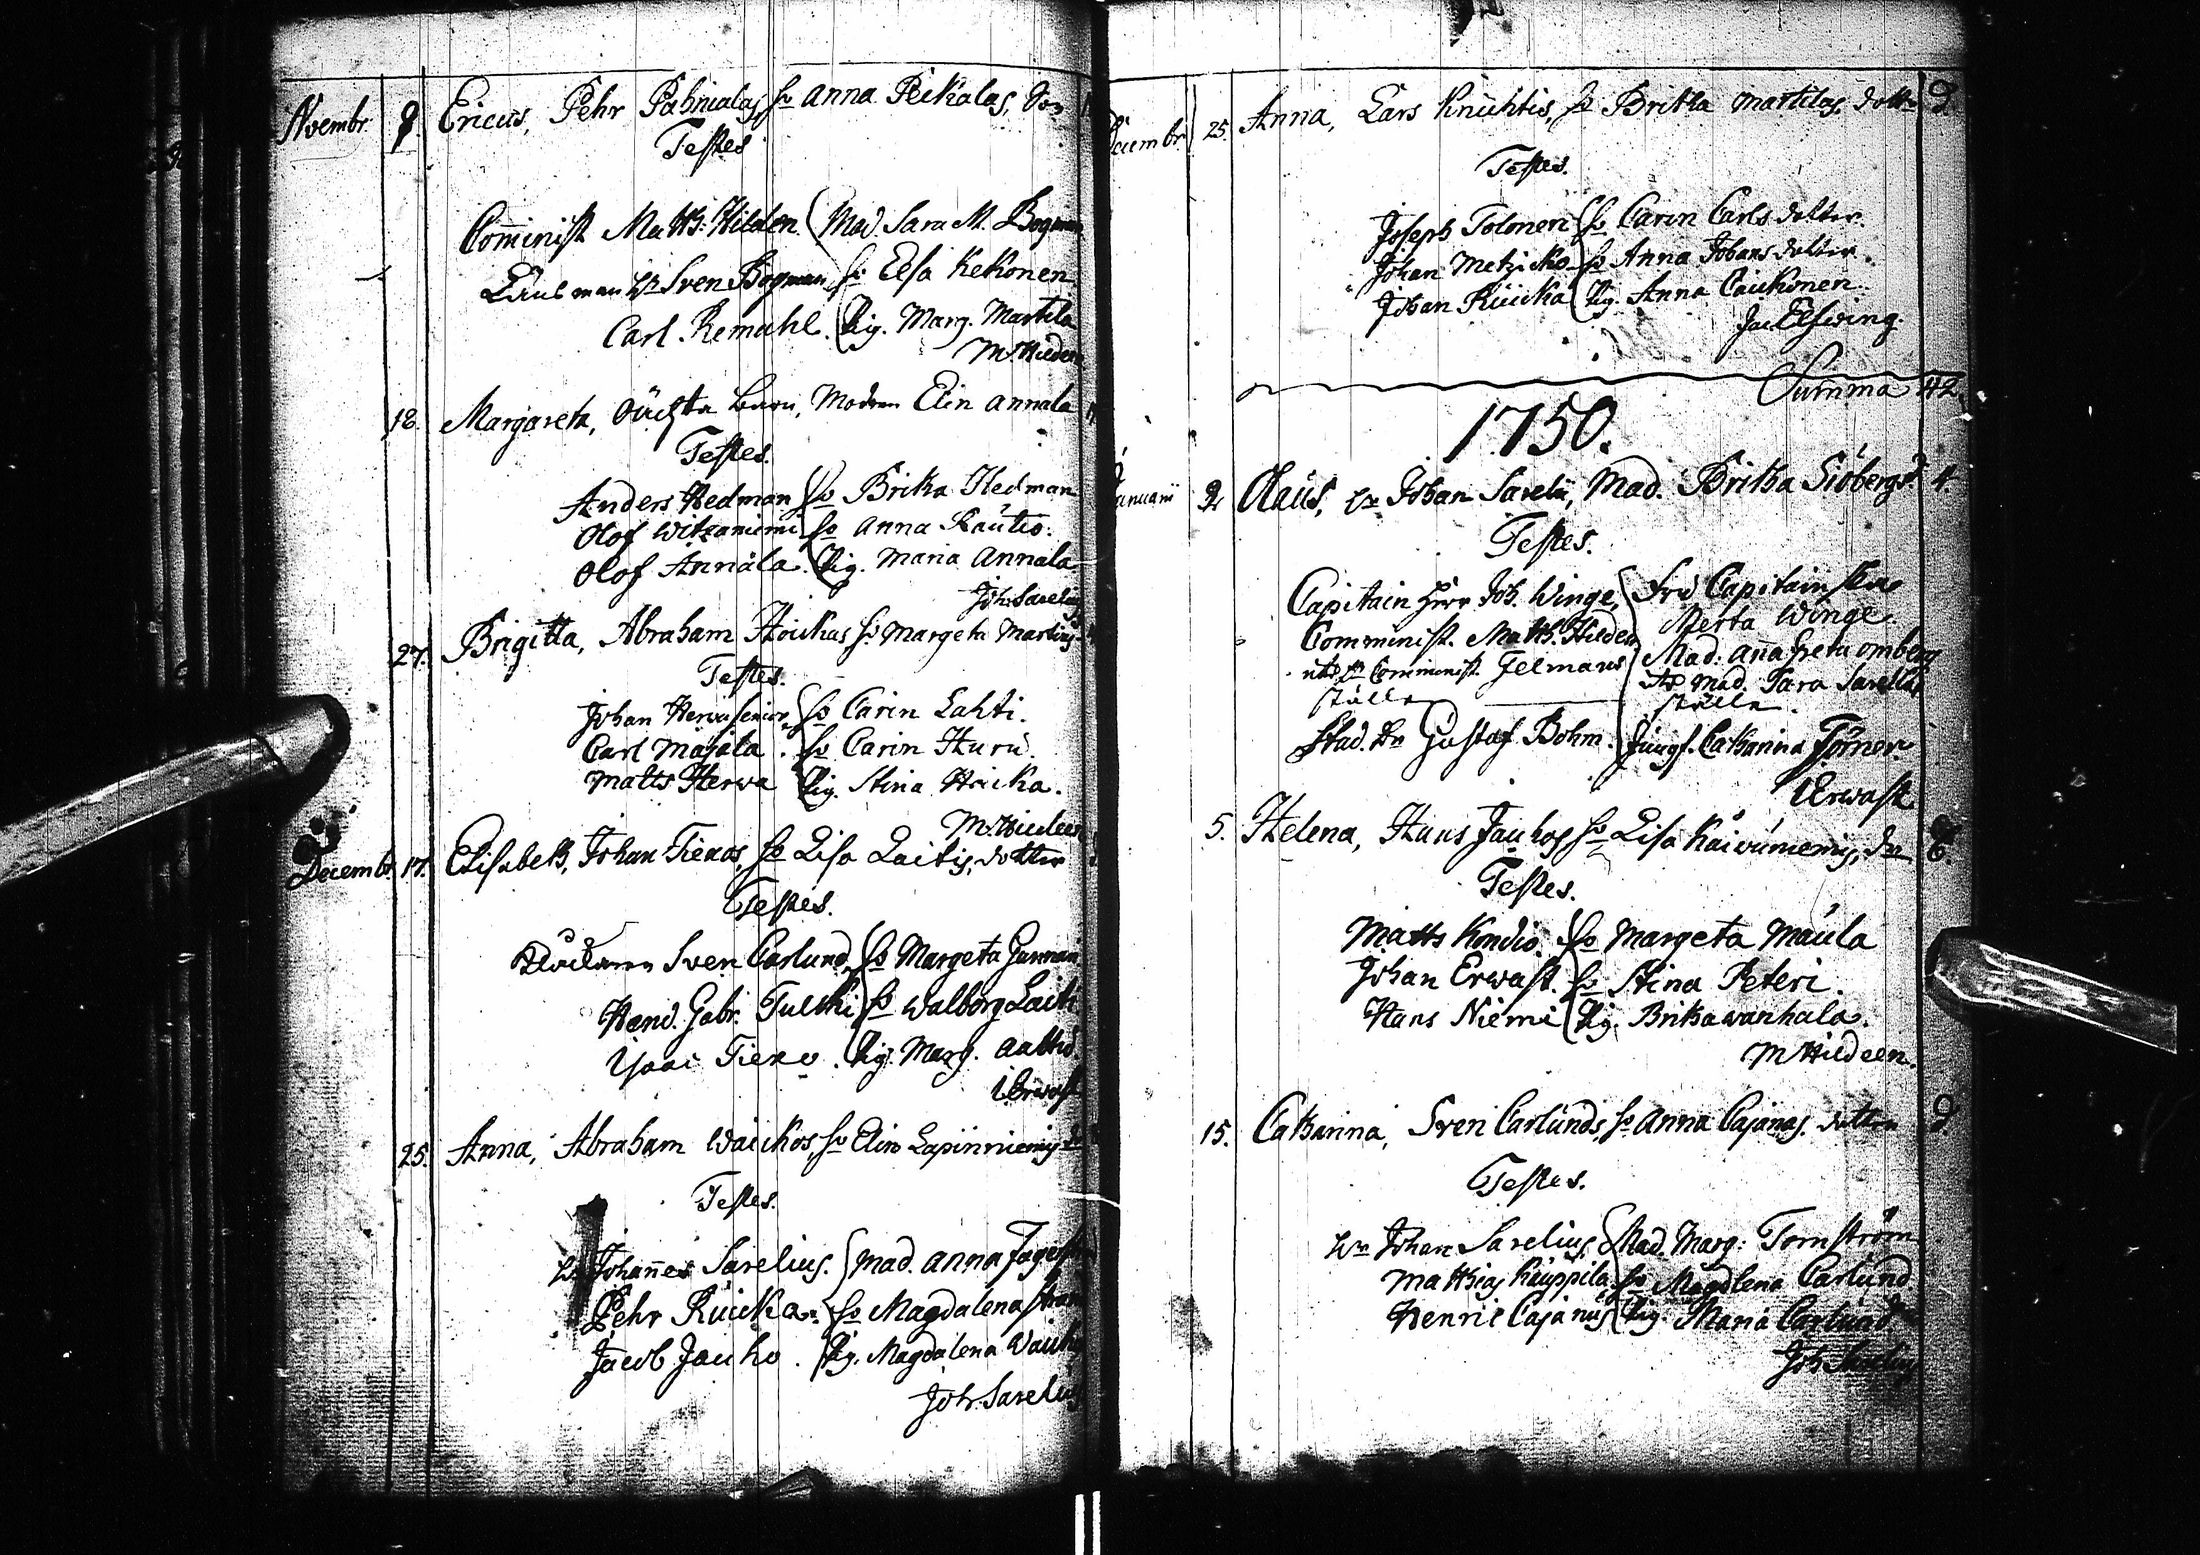 Novembr. 9. Ericus, Pehr Pahnialas, ho Anna Peikalas, Son
Testes
Comminist. Matth: Hilden Mad. Sara M. Bogman
Länsman Hr Sven Bogman ho Elsa Kekonen
Carl Remahl. Pig. Marg. Martila
M. Hildeen
18. Margareta, oäckta barn, Modren Elin Annala
Testes.
Anders Hedman ho Brita Hedman
Olof Witzaniemi ho Anna Rautio.
Olof Annala. Pig. Maria Annala.
Joh. Sarelius
27. Brigitta, Abraham Hoickas ho Margeta Martins
Testes.
Johan Herva senior, ho Carin Lahti.
Carl Majala. ho Carin Huru.
Matts Herwa Pig. Stina Hoicka.
M. Hildeen
Decembr. 17. Elisabeth, Johan Tienos, ho Lisa Laitis, dotter
Testes.
Klockaren Sven Carlund, ho Margeta Gunnari
Hend. Gabr. Tulkki ho Walborg Laiti
Isaac Tieno. Pig. Marg. Aaltio
I Erwast
25. Anna, Abraham Waickos, ho Elin Lapinniemis dr
Testes.
Hr Johannes Sarelius. Mad. Anna Fager
Pehr Ruicka. ho Magdalena
Jacob Jauho. Pig. Magdalena Waicko
Joh. Sarelius
Decembr. 25. Anna, Lars Knuhtis, ho Britha Martilas, dotter 9
Testes.
Joseph Tolonen ho Carin Carlsdotter.
Johan Metzicko ho Anna Johansdotter.
Johan Ruicka Pig. Anna Caickonen.
Jac Elfwing.
Summa 42.
1750.
Januarii 2 Olaus, Hr Johan Sarelii, Mad. Britha Siöbergs 4.
Testes.
Capitain Herr Joh. Winge, Fru Capitainskan
Merta Winge.
Comminist. Matth. Hilden Mad: Anna Greta Omberg
uti Hr Comminist. Gelmans uti Mad. Sara Sarelius
ställe ställe.
Stud. Hr Gustaf Bohm. Jungf. Catharina Törner.
I Erwast
5. Helena, Hans Jauhos ho Lisa Kaivuniemis, dr 6.
Testes.
Matts Kondio. ho Margeta Maula
Johan Erwast. ho Stina Peteri.
Hans Niemi Pig. Brita Wanhala.
M Hildeen.
15. Catharina, Sven Carlunds, ho Anna Cajanas. dotter 9
Testes.
Hr Johan Sarelius. Mad. Marg: Tornström
Matthias Kauppila ho Magdlena Carlund
Henric Cajanus Pig. Maria Carlund
Joh. Sarelius